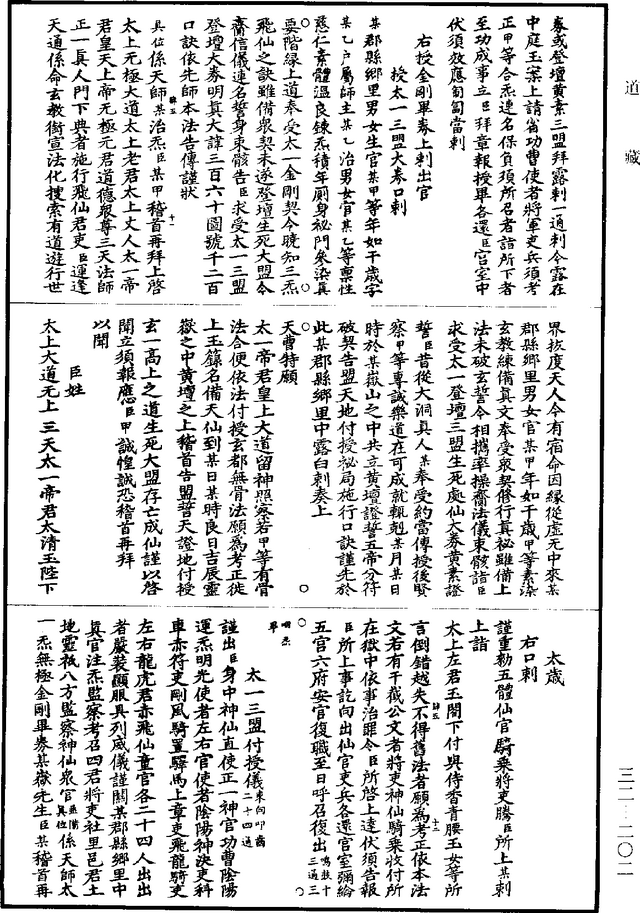 道藏
券或登壇黃素三盟拜露刺一通刺令露在
中庭玉案上請省功曹使者將軍吏兵須考
正甲等合炁連名保負須所召者詣所下者
至功成事立臣拜章報授畢各還臣宮室中
伏須效應匍匐當刺
右授金剛畢券上刺出官
授太一三盟大券口刺
某郡縣鄉里男女生官某甲等年如干歲字
某乙戶屬師主某乙治男女官某乙等稟性
慈仁素體溫良鍊炁積年厠身祕門參染真
要階緣上道奉受太一金剛契令曉知三炁
飛仙之訣雖備衆契未遂登壇生死大盟今
齎信儀連名誓身束骸告臣求受太一三盟
登壇大券明真大諱三百六十圖號千二百
口訣依先師本法告傳謹狀
具位係天師某治炁臣某甲稽首再拜上啓
太上无極大道太上老君太上丈人太一帝
君皇天上帝无極元君道德衆尊三天法師
正一真人門下典者施行飛仙君吏臣運逢
天通係命玄教銜宣法化搜索有道遊行世
界拔度天人今有宿命因緣從虛无中來某
郡縣鄉里男女官某甲年如干歲甲等素染
玄教練備真文奉受衆契修行真祕雖備上
法未破玄誓今相攜率操齎法儀束骸詣臣
求受太一登壇三盟生死處仙大券黃素證
誓臣昔從大洞真人某奉受約當傳授後賢
察甲等專誠樂道在可成就輒剋某月某日
時於某嶽山之中共立黃壇證誓五帝分符
破契告盟天地付授祕局施行口訣謹先於
此某郡縣鄉里中露白刺奏上
天曹特願
太一帝君皇上大道留神照察若甲等有骨
法合便依法付授玄都無骨法願為考正徙
上玉籙名備天仙到某日某時良日吉辰靈
嶽之中黃壇之上稽首告盟誓天證地付授
玄一高上之道生死大盟存亡成仙謹以啓
聞立須報應臣甲誠惶誠恐稽首再拜
以聞
臣姓
太上大道无上三天太一帝君太清玉陛下
太歲
右口刺
謹重勑五體仙官騎乘將吏賷臣所上某刺
上詣
太上左君玉閣下付與侍香青腰玉女等所
言倒錯越失不得舊法者願為考正依本法
文若有干截公文者將吏神仙騎乘收付所
在獄中依事治罪令臣所啓上達伏須告報
臣所上事訖向出仙官吏兵各還官室彌綸
五官六府安官復職至日呼召復出鳴鼓十三通三
咽炁畢
太一三盟付授儀東向叩齒二十四通
謹出臣身中神仙直使正一神官功曹陰陽
運炁明光使者左右官使者陰陽神決吏科
車赤符吏剛風騎置驛馬上章吏飛龍騎吏
左右龍虎君赤飛仙童官各二十四人出出
者嚴裝顯服具列威儀謹關某郡縣鄉里中
真官注炁監察考召四君將吏社里邑君土
地靈祇八方監察神仙衆官具位係天師太
一炁無極金剛畢券某嶽先生臣某稽首再
三二—二〇二